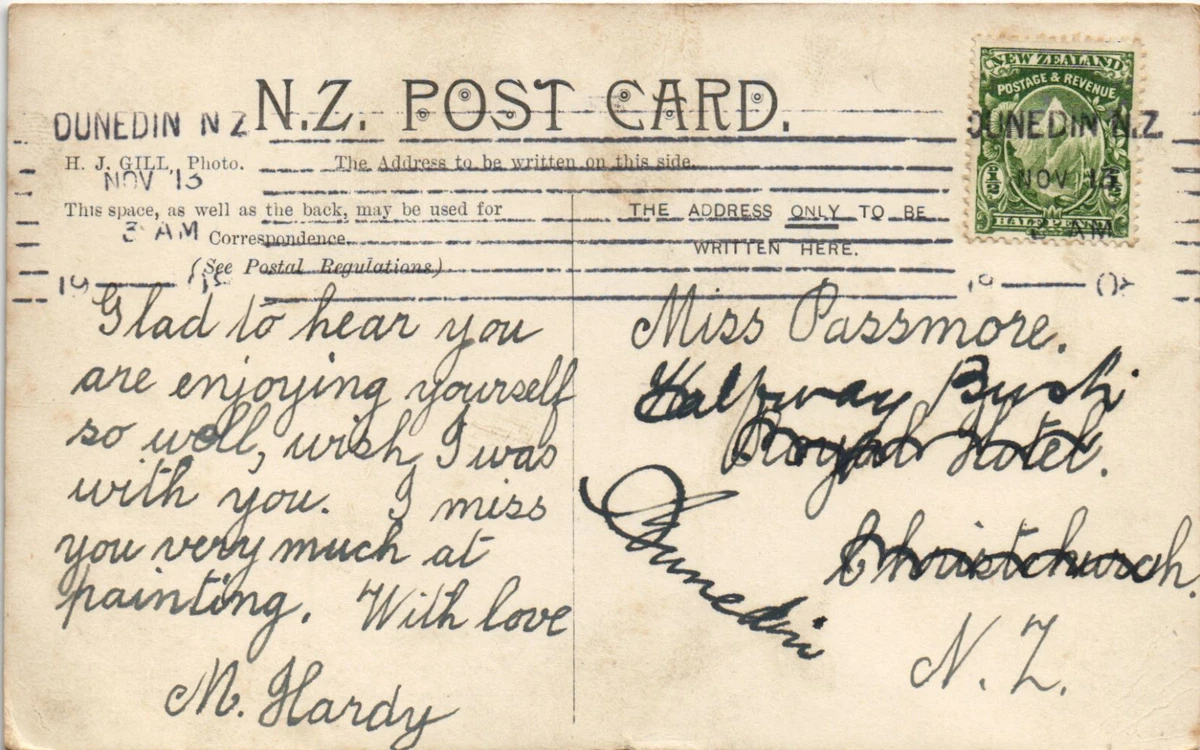 N.Z. POST CARD.
DUNEDIN N Z
H. J. GILL, Photo.
The Address to be written on this side.
NOV 13
This space, as well as the back, may be used for
3 AM
Correspondence.
(See Postal Regulations.)
19
Glad to hear you
are enjoying yourself
so well, wish I was
with you. I miss
you very much at
painting. With love
M. Hardy
NEW ZEALAND
POSTAGE & REVENUE
DUNEDIN N.Z.
NOV 13
1/2 1/2
HALF PENNY
3 AM
19
THE ADDRESS ONLY TO BE
WRITTEN HERE.
Miss Passmore.
Halfway Bush
Royal Hotel.
Dunedin
Christchurch.
N. Z.